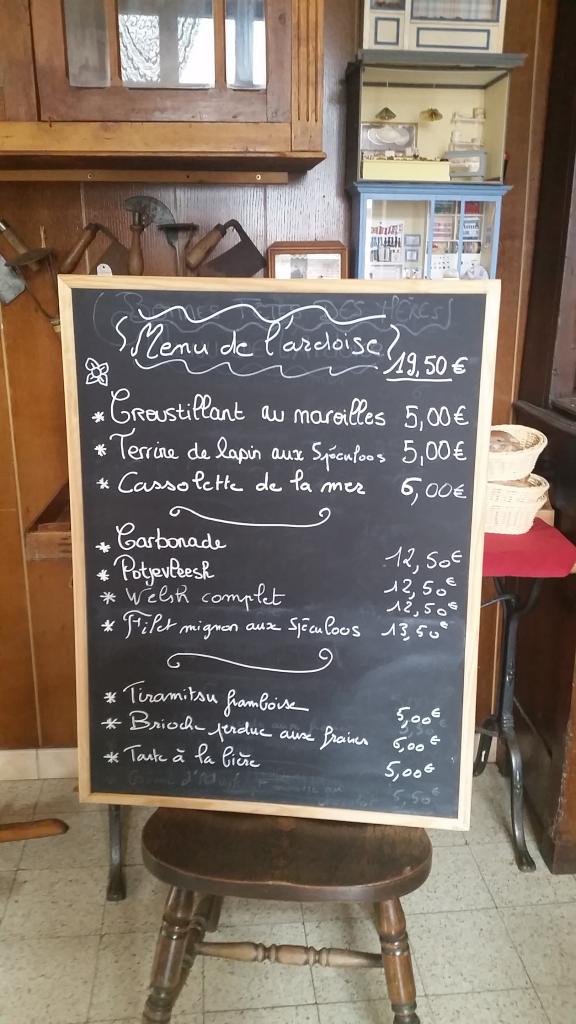 Menu de l'ardoise 19,50€
* Croustillant au maroilles 5,00€
* Terrine de lapin aux Spéculoos 5,00€
* Cassolette de la mer 6,00€
* Carbonade 12,50€
* Potjevleesh 12,50€
* Welsh complet 12,50€
* Filet mignon aux Spéculoos 13,50€
* Tiramitsu framboise 5,00€
* Brioche perdue aux fraises 5,00€
* Tarte à la bière 5,00€